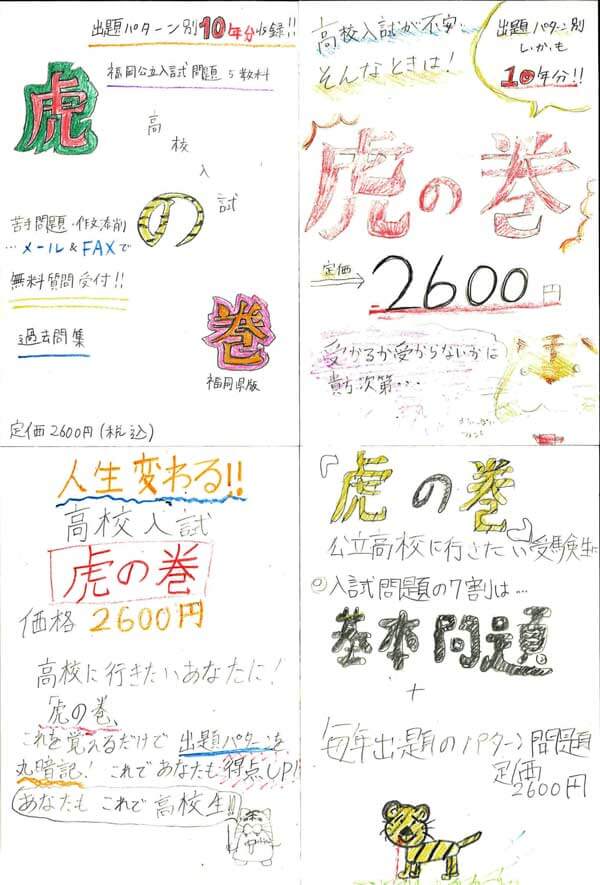 出題パターン別10年分収録!!
福岡公立入試問題5教科
虎
高校入試
の
苦手問題・作文添削
…メール&FAXで
無料質問受付!!
巻
過去問集
福岡県版
定価2600円(税込)
高校入試が不安…
そんなときは!
出題パターン別
しかも
10年分!!
虎の巻
定価
2600円
受かるか受からないかは
貴方次第…
人生変わる!!
高校入試
虎の巻
価格 2600円
高校に行きたいあなたに!
「虎の巻」
これを覚えるだけで 出題パターンを
丸暗記! これであなたも得点UP!!
あなたもこれで高校生!!
『虎の巻』
公立高校に行きたい受験生に
◎入試問題の7割は…
基本問題
+
毎年出題のパターン問題
定価
2600円